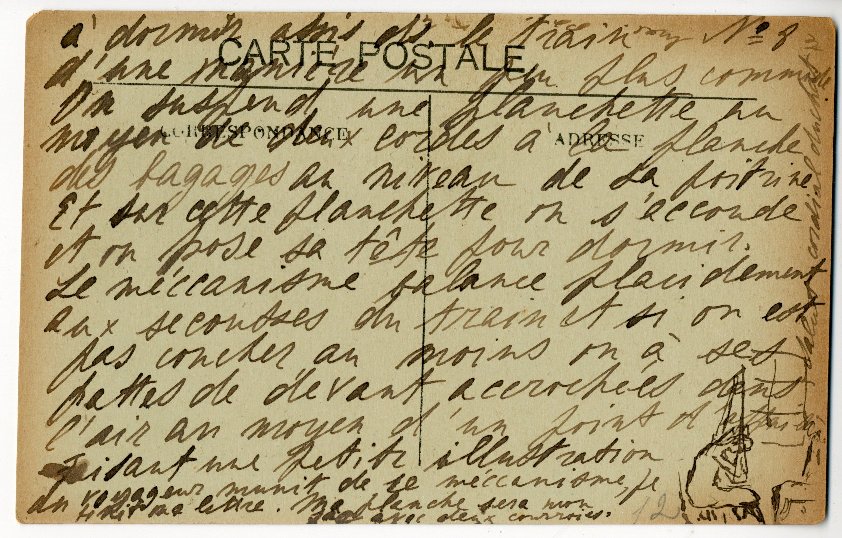 à dormir assis ds. le train N° 8
CARTE POSTALE
d'une manière un peu plus commode
On suspend une planchette au
CORRESPONDANCE
ADRESSE
moyen de deux cordes à la planche
des bagages au niveau de la poitrine
Et sur cette planchette on s'accoude
et on pose sa tête pour dormir.
Le méccanisme balance placidement
aux secousses du train et si on est
pas coucher au moins on à ses
pattes de devant accrochées dans
l'air au moyen d'un point d'
Faisant une petite illustration
du voyageur munit de ce méccanisme, je
finit ma lettre. Ma planche sera mon
sac avec deux courroies.
12
cordial